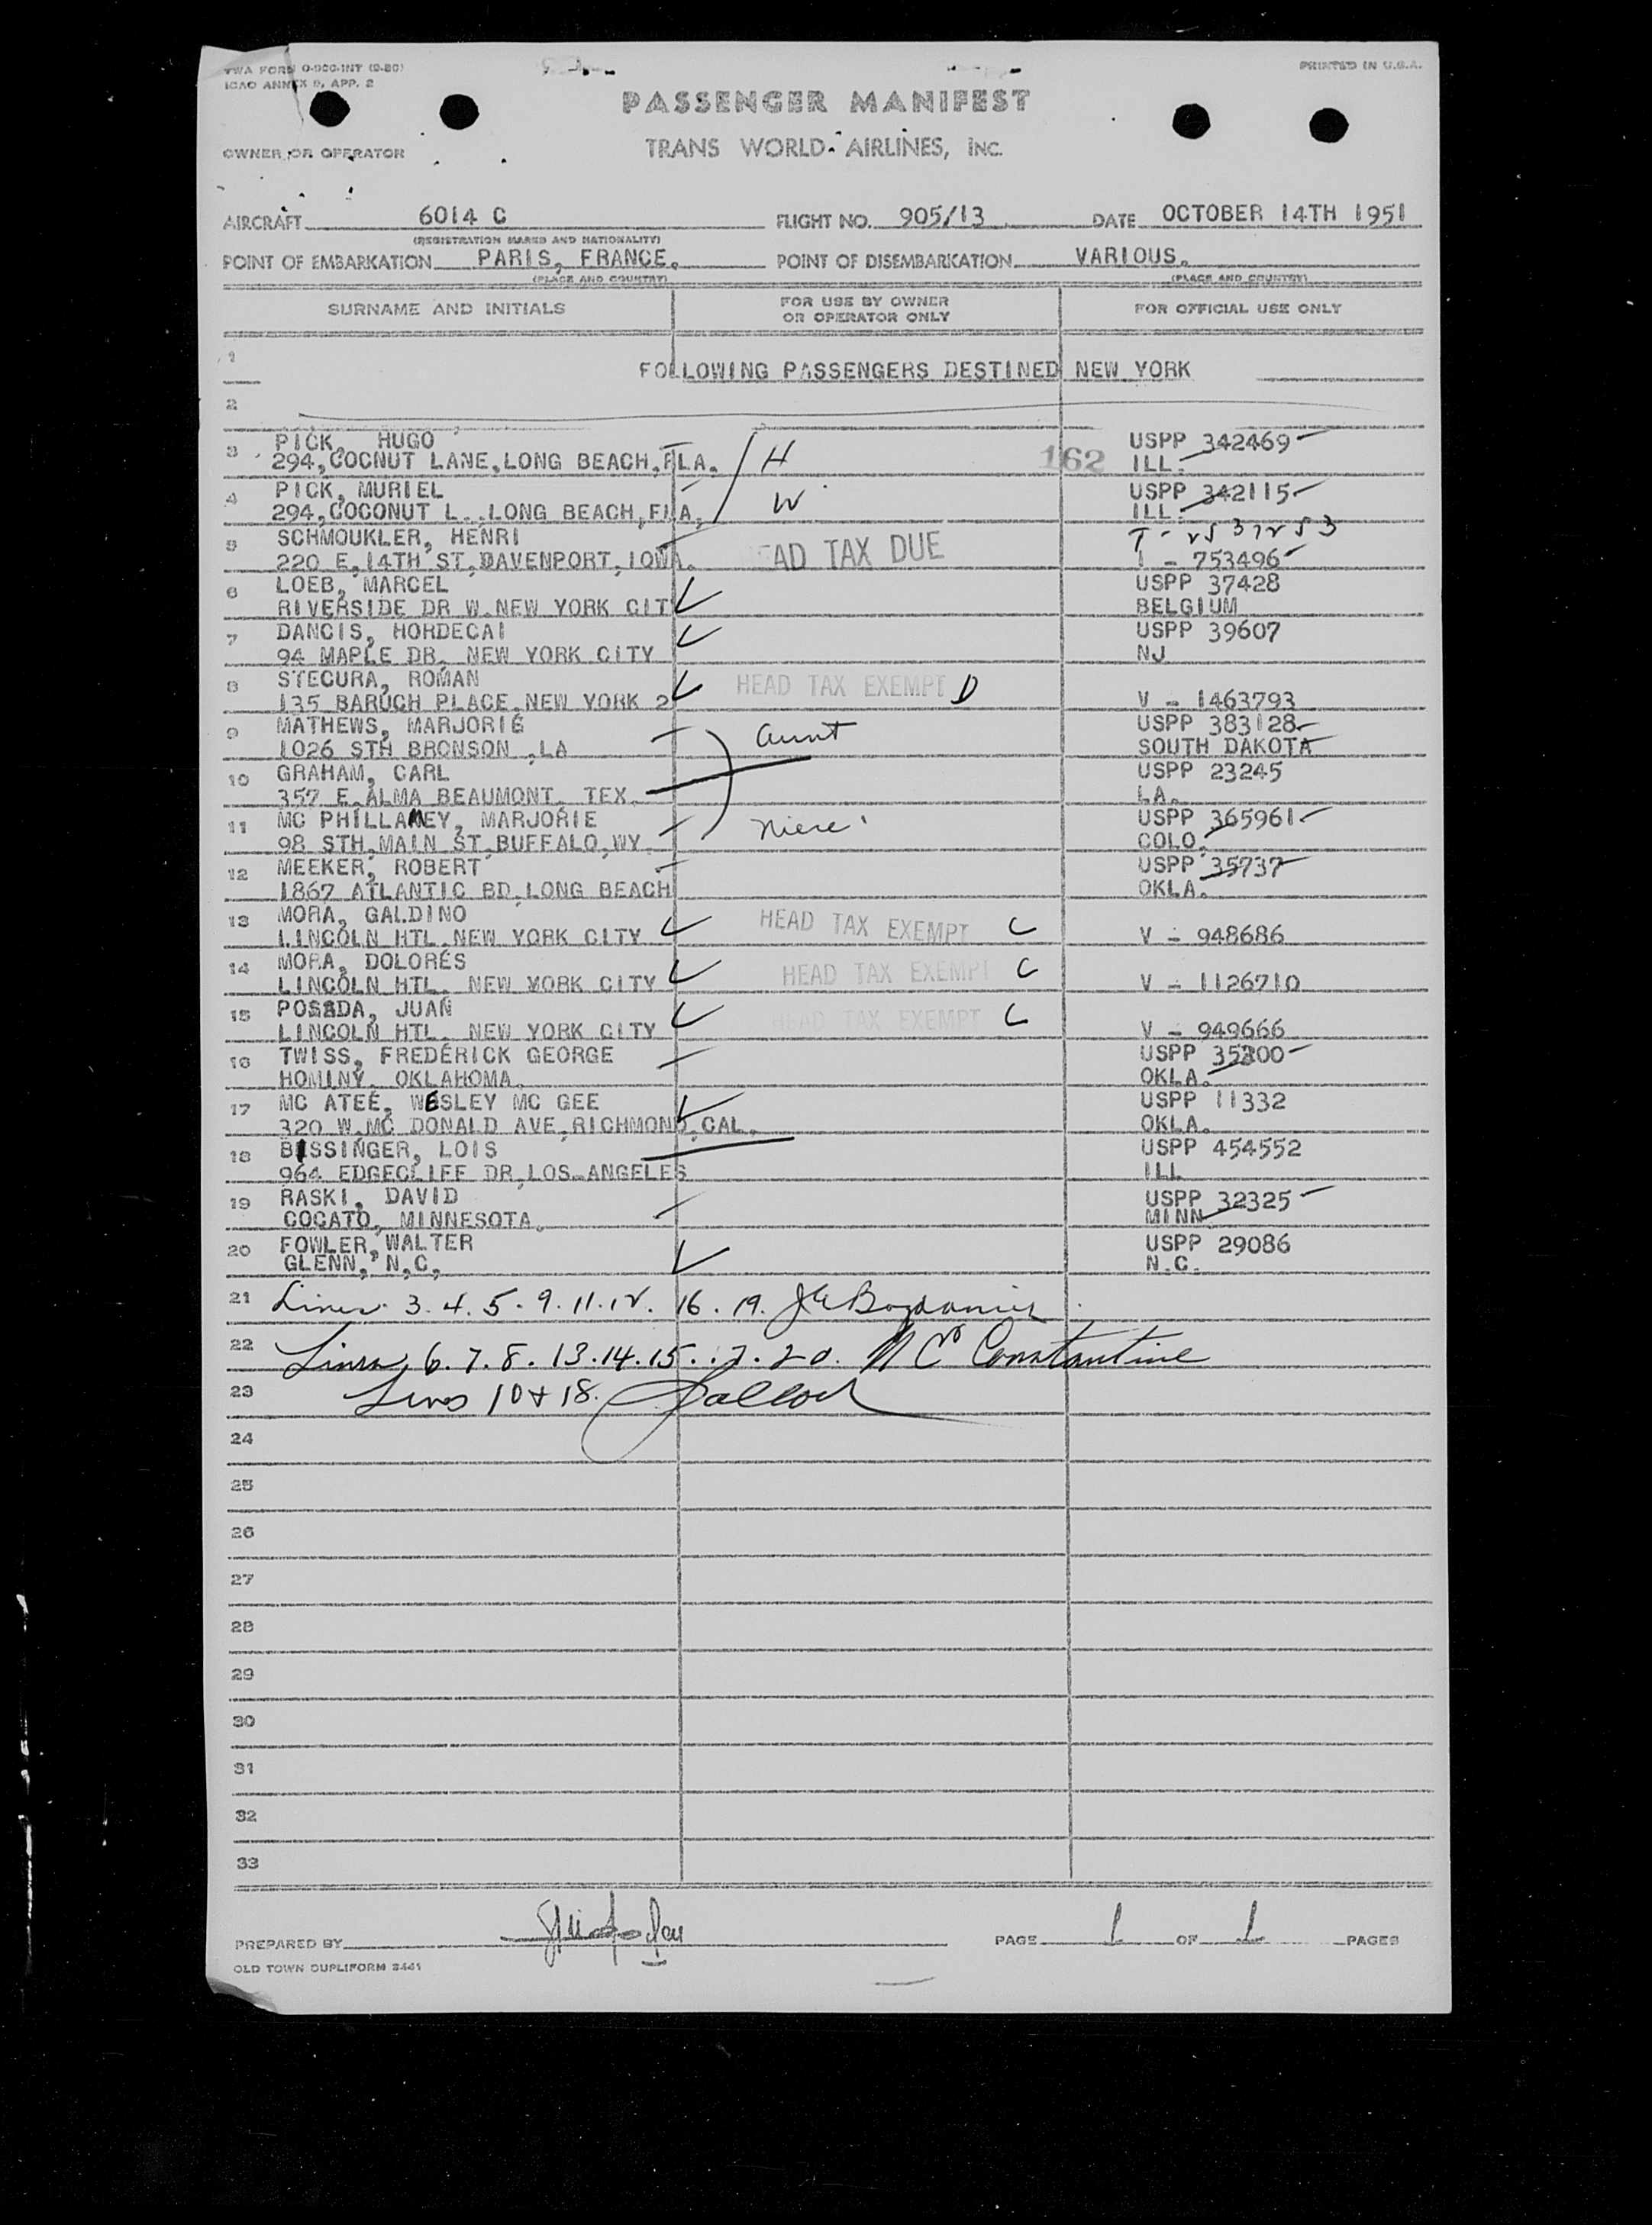 TWA FORM O-906-INT (9-50)
ICAO ANNEX 9, APP. 2
PRINTED IN U.S.A.
PASSENGER MANIFEST
OWNER OR OPERATOR
TRANS WORLD AIRLINES, INC.
AIRCRAFT 6014 C FLIGHT NO. 905/13 DATE OCTOBER 14TH 1951
(REGISTRATION MARKS AND NATIONALITY)
POINT OF EMBARKATION PARIS, FRANCE. POINT OF DISEMBARKATION VARIOUS.
(PLACE AND COUNTRY) (PLACE AND COUNTRY)
SURNAME AND INITIALS FOR USE BY OWNER OR OPERATOR ONLY FOR OFFICIAL USE ONLY
1 FOLLOWING PASSENGERS DESTINED NEW YORK
2
3 PICK, HUGO USPP 342469
294, COCNUT LANE, LONG BEACH, FLA. H 162 ILL.
4 PICK, MURIEL USPP 342115
294, COCONUT L., LONG BEACH, FLA. W ILL.
5 SCHMOUKLER, HENRI
220 E. 14TH ST, DAVENPORT, IOWA. EAD TAX DUE I - 753496
6 LOEB, MARCEL USPP 37428
RIVERSIDE DR W. NEW YORK CIT BELGIUM
7 DANCIS, HORDECAI USPP 39607
94 MAPLE DR, NEW YORK CITY NJ
8 STECURA, ROMAN HEAD TAX EXEMPT D
135 BARUCH PLACE, NEW YORK 2 V - 1463793
9 MATHEWS, MARJORIE aunt USPP 383128
1026 STH BRONSON, LA SOUTH DAKOTA
10 GRAHAM, CARL USPP 23245
357 E. ALMA BEAUMONT, TEX. LA.
11 MC PHILLAMEY, MARJORIE niece USPP 365961
98 STH, MAIN ST, BUFFALO, WY COLO.
12 MEEKER, ROBERT USPP 35737
1867 ATLANTIC BD, LONG BEACH OKLA.
13 MORA, GALDINO HEAD TAX EXEMPT C
LINCOLN HTL. NEW YORK CITY V - 948686
14 MORA, DOLORES HEAD TAX EXEMPT C
LINCOLN HTL. NEW YORK CITY V - 1126710
15 POSADA, JUAN HEAD TAX EXEMPT C
LINCOLN HTL. NEW YORK CITY V - 949666
16 TWISS, FREDERICK GEORGE USPP
HOMINY, OKLAHOMA. OKLA.
17 MC ATEE, WESLEY MC GEE USPP 11332
320 W. MC DONALD AVE, RICHMOND, CAL. OKLA.
18 BISSINGER, LOIS USPP 454552
964 EDGECLIFF DR, LOS-ANGELES ILL
19 RASKI, DAVID USPP 32325
COCATO, MINNESOTA. MINN
20 FOWLER, WALTER USPP 29086
GLENN, N,C, N.C.
21 Lines 3. 4. 5. 9. 11. 12. 16. 19.
22 Lines 6. 7. 8. 13. 14. 15. 17. 20. Constantine
23 Lines 10 + 18.
24
25
26
27
28
29
30
31
32
33
PREPARED BY PAGE 1 OF 1 PAGES
OLD TOWN DUPLIFORM 8441